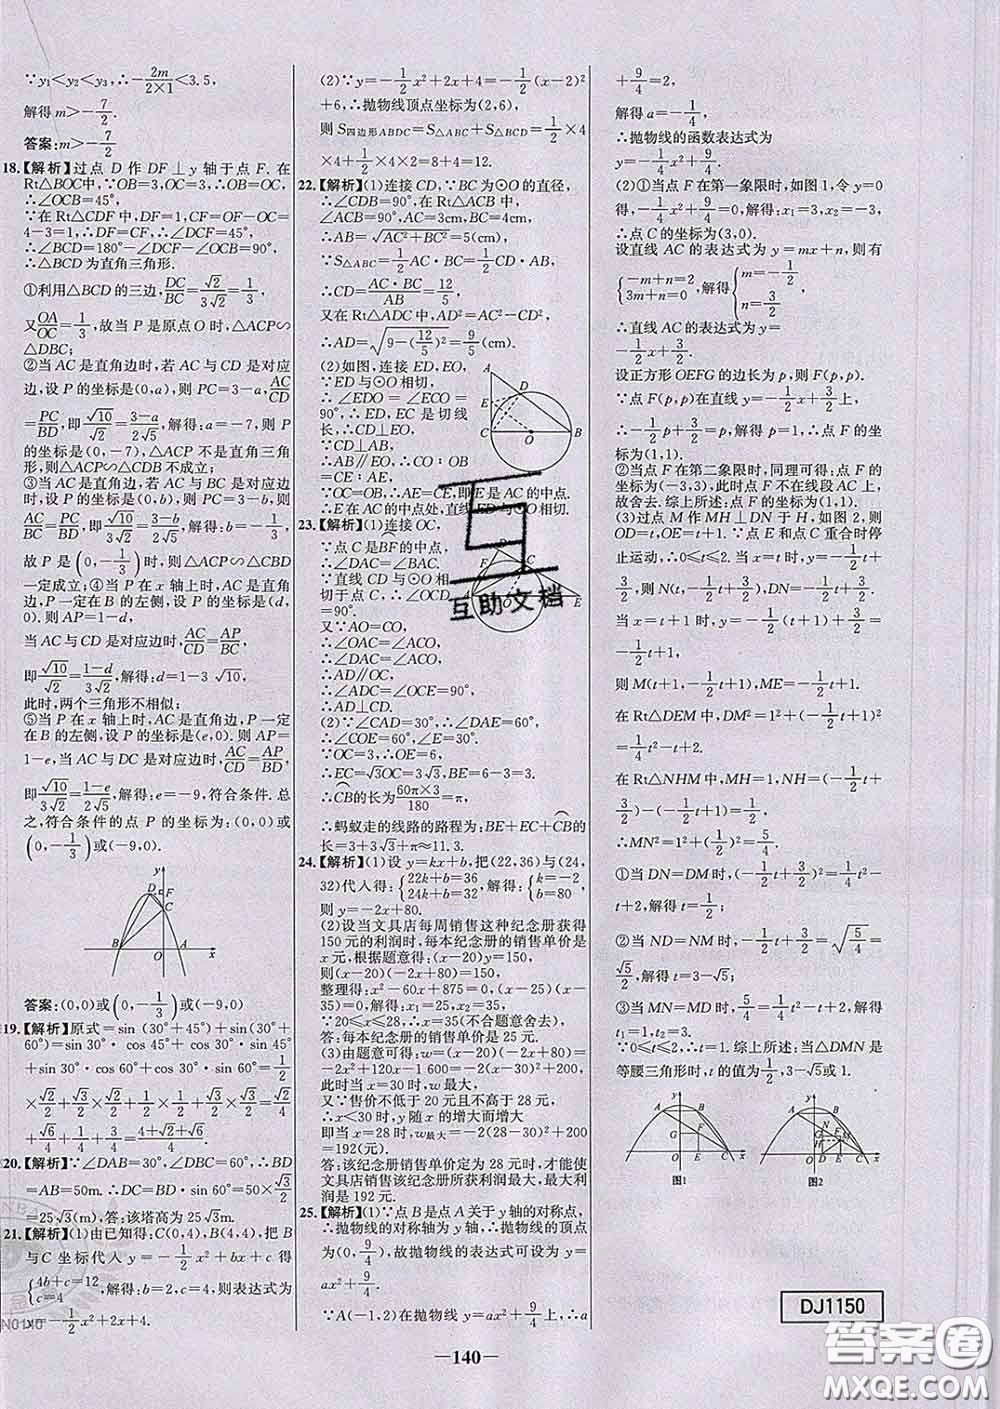 ∵y₁<y₂<y₃,∴-2m/(2×1)<3.5,
解得m>-7/2.
答案:m>-7/2
18.【解析】过点D作DF⊥y轴于点F.在
Rt△BOC中,∵OB=3,OC=3,∴OB=OC,
∴∠OCB=45°.
∵在Rt△CDF中,DF=1,CF=OF-OC=
4-3=1,∴DF=CF,∴∠DCF=45°.
∴∠BCD=180°-∠DCF-∠OCB=90°.
∴△BCD为直角三角形.
①利用△BCD的三边,DC/BC=√2/(3√2)=1/3,
又OA/OC=1/3,故当P是原点O时,△ACP∽
△DBC;
②当AC是直角边时,若AC与CD是对应
边,设P的坐标是(0,a),则PC=3-a,AC/CD
=PC/BD,即√10/√2=(3-a)/(2√5),解得:a=-7,则P
的坐标是(0,-7),△ACP不是直角三角
形,则△ACP∽△CDB不成立;
③当AC是直角边,若AC与BC是对应边
时,设P的坐标是(0,b),则PC=3-b,则
AC/BC=PC/BD,即√10/(3√2)=(3-b)/(2√5),解得:b=-1/3,
故P是(0,-1/3)时,则△ACP∽△CBD
一定成立;④当P在x轴上时,AC是直角
边,P一定在B的左侧,设P的坐标是(d,
0).则AP=1-d,
当AC与CD是对应边时,AC/CD=AP/BC,
即√10/√2=(1-d)/(3√2),解得:d=1-3√10,
此时,两个三角形不相似;
⑤当P在x轴上时,AC是直角边,P一定
在B的左侧,设P的坐标是(e,0).则AP=
1-e,当AC与DC是对应边时,AC/CD=AP/BD,
即√10/√2=(1-e)/(2√5),解得:e=-9,符合条件.总
之,符合条件的点P的坐标为:(0,0)或
(0,-1/3)或(-9,0).
y
D F
C
B O A x
答案:(0,0)或(0,-1/3)或(-9,0)
19.【解析】原式=sin(30°+45°)+sin(30°+
60°)=sin30°·cos45°+cos30°·sin45°
+sin30°·cos60°+cos30°·sin60°=1/2
×√2/2+√3/2×√2/2+1/2×1/2+√3/2×√3/2=√2/4
+√6/4+1/4+3/4=(4+√2+√6)/4.
20.【解析】∵∠DAB=30°,∠DBC=60°,∴BD
=AB=50m.∴DC=BD·sin60°=50×√3/2
=25√3(m),答:该塔高为25√3m.
21.【解析】(1)由已知得:C(0,4),B(4,4),把B
与C坐标代入y=-1/2x²+bx+c得
{4b+c=12,c=4},解得:b=2,c=4,则表达式为
y=-1/2x²+2x+4.
(2)∵y=-1/2x²+2x+4=-1/2(x-2)²
+6,∴抛物线顶点坐标为(2,6),
则S四边形ABDC=S△ABC+S△BCD=1/2×4
×4+1/2×4×2=8+4=12.
22.【解析】(1)连接CD,∵BC为⊙O的直径,
∴∠CDB=90°.在Rt△ABC中,
∠ACB=90°,AC=3cm,BC=4cm,
∴AB=√(AC²+BC²)=5(cm)
∵S△ABC=1/2AC·BC=1/2AB·CD,
∴CD=AC·BC/AB=12/5,
又在Rt△ADC中,AD²=AC²-CD²,
∴AD=√(9-(12/5)²)=9/5(cm).
(2)如图,连接ED,EO,
∵ED与⊙O相切,
∴∠EDO=∠ECO=
90°,∴ED,EC是切线
长,∴CD⊥EO,
∵CD⊥AB,
∴AB∥EO,∴CO:OB
=CE:AE,
∵OC=OB,∴AE=CE,即E是AC的中点.
∴E在AC的中点处,直线ED与⊙O相切.
A
D
E
C O B
23.【解析】(1)连接OC,
∵点C是BF的中点,
∴∠DAC=∠BAC.
∵直线CD与⊙O相
切于点C,∴∠OCD
=90°.
又∵AO=CO,
∴∠OAC=∠ACO,
∴∠DAC=∠ACO,
∴AD∥OC,
∴∠ADC=∠OCE=90°,
∴AD⊥CD.
(2)∵∠CAD=30°,∴∠DAE=60°.
∴∠COE=60°,∠E=30°.
∵OC=3,∴OE=6.
∴EC=√3OC=3√3,BE=6-3=3.
∴CB的长为60π×3/180=π,
∴蚂蚁走的线路的路程为:BE+EC+CB的长
=3+3√3+π≈11.3.
24.【解析】(1)设y=kx+b,把(22,36)与(24,
32)代入得:{22k+b=36,24k+b=32},解得:{k=-2,b=80},
则y=-2x+80.
(2)设当文具店每周销售这种纪念册获得
150元的利润时,每本纪念册的销售单价是
x元,根据题意得:(x-20)y=150,
则(x-20)(-2x+80)=150,
整理得:x²-60x+875=0,
(x-25)(x-35)=0,解得:x₁=25,x₂=35,
∵20≤x≤28,∴x=35(不合题意舍去),
答:每本纪念册的销售单价是25元.
(3)由题意可得:w=(x-20)(-2x+80)=
-2x²+120x-1600=-2(x-30)²+200,
此时当x=30时,w最大,
又∵售价不低于20元且不高于28元,
∴x<30时,y随x的增大而增大
即当x=28时,w最大=-2(28-30)²+200
=192(元).
答:该纪念册销售单价定为28元时,才能使
文具店销售该纪念册所获得利润最大,最大
利润是192元.
25.【解析】(1)∵点B是点A关于y轴的对称点,
∴抛物线的对称轴为y轴,∴抛物线的顶点
为(0,9/4),故抛物线的表达式可设为y=
ax²+9/4.
∵A(-1,2)在抛物线y=ax²+9/4上,∴a
+9/4=2,
解得a=-1/4,
∴抛物线的函数表达式为
y=-1/4x²+9/4.
(2)①当点F在第一象限时,如图1,令y=0
得,-1/4x²+9/4=0,解得:x₁=3,x₂=-3,
∴点C的坐标为(3,0).
设直线AC的表达式为y=mx+n,则有
{-m+n=2,3m+n=0},解得{m=-1/2,n=3/2}
∴直线AC的表达式为y=
-1/2x+3/2.
设正方形OEFG的边长为p,则F(p,p).
∵点F(p,p)在直线y=-1/2x+3/2上,
∴-1/2p+3/2=p,解得p=1,∴点F的坐
标为(1,1).
②当点F在第二象限时,同理可得:点F的
坐标为(-3,3),此时点F不在线段AC上,
故舍去.综上所述:点F的坐标为(1,1).
(3)过点M作MH⊥DN于H,如图2,则
OD=t,OE=t+1.∵点E和点C重合时停
止运动,∴0≤t≤2.当x=t时,y=-1/2t+
3/2,则N(t,-1/2t+3/2),DN=-1/2t+3/2.
当x=t+1时,y=-1/2(t+1)+3/2=
-1/2t+1,
则M(t+1,-1/2t+1),ME=-1/2t+1.
在Rt△DEM中,DM²=1²+(-1/2t+1)²
=1/4t²-t+2.
在Rt△NHM中,MH=1,NH=(-1/2t+
3/2)-(-1/2t+1)=1/2,
∴MN²=1²+(1/2)²=5/4.
①当DN=DM时,(-1/2t+3/2)²=1/4t²
-t+2,解得t=1/2,
②当ND=NM时,-1/2t+3/2=√(5/4)=
√5/2,解得t=3-√5,
③当MN=MD时,5/4=1/4t²-t+2,解得
t₁=1,t₂=3.
∵0≤t≤2,∴t=1.综上所述:当△DMN是
等腰三角形时,t的值为1/2,3-√5或1.
图1 图2
DJ1150
—140—
互助文档
答案圈
MXQE.COM